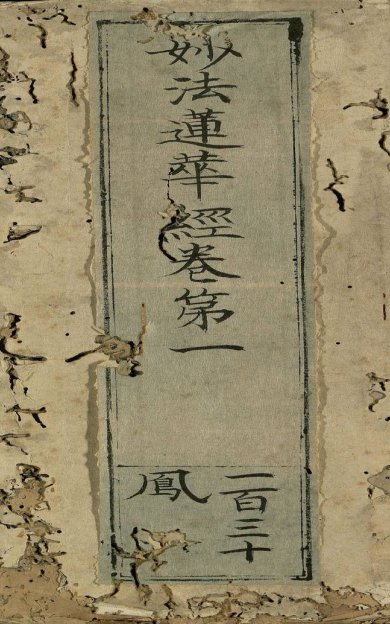 妙法蓮華經卷第一
二百三十
鳳